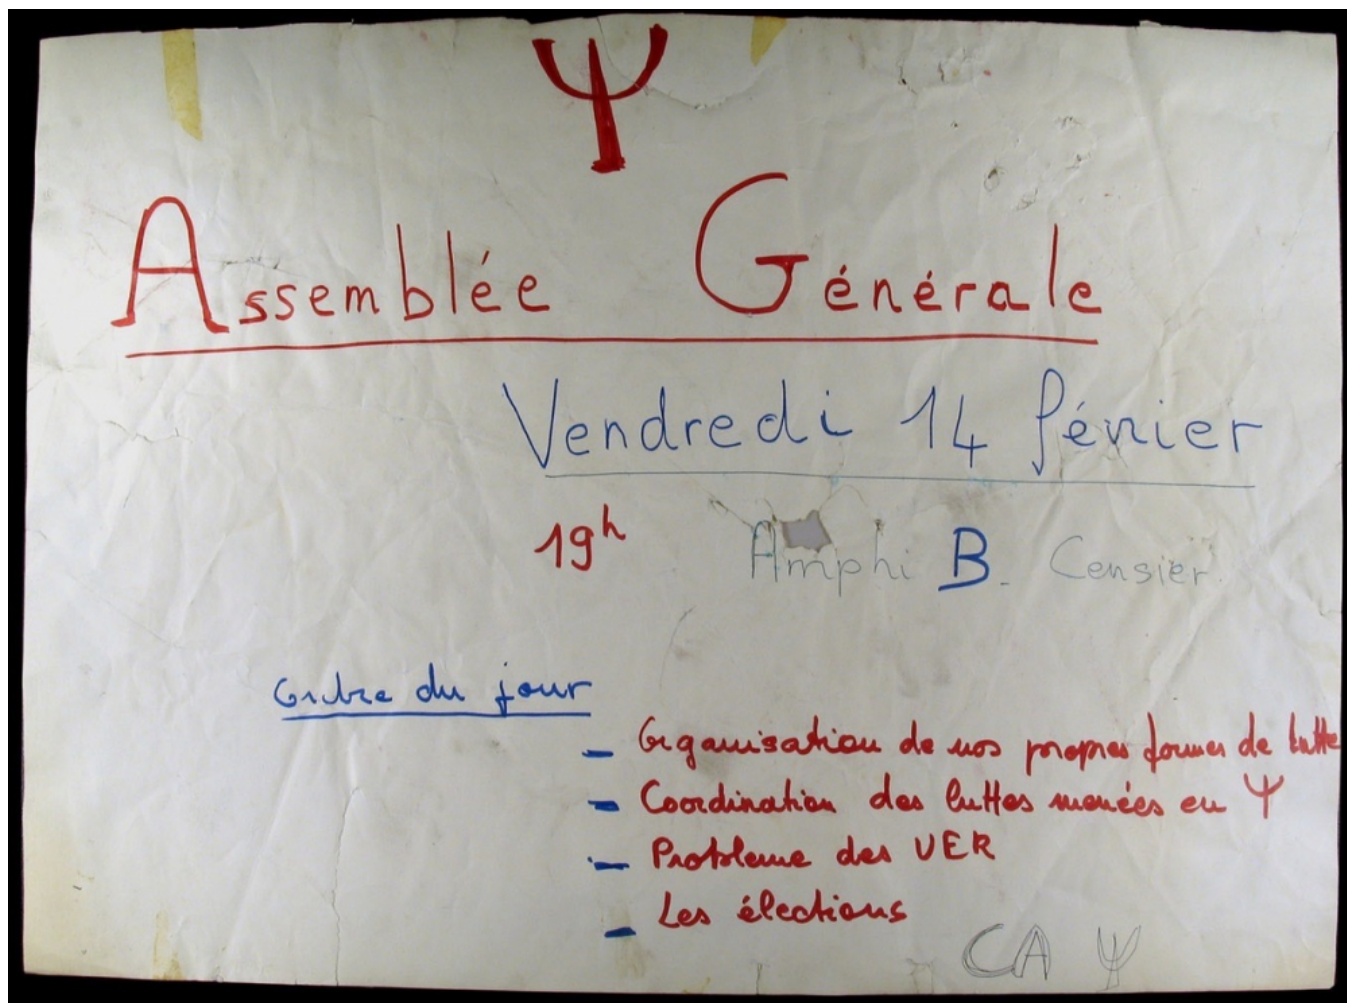 Ψ
Assemblée Générale
Vendredi 14 février
19h Amphi B. Censier.
Ordre du jour
– Organisation de nos propres formes de lutte
– Coordination des luttes menées en Ψ
– Probleme des UER
– Les élections
CA Ψ